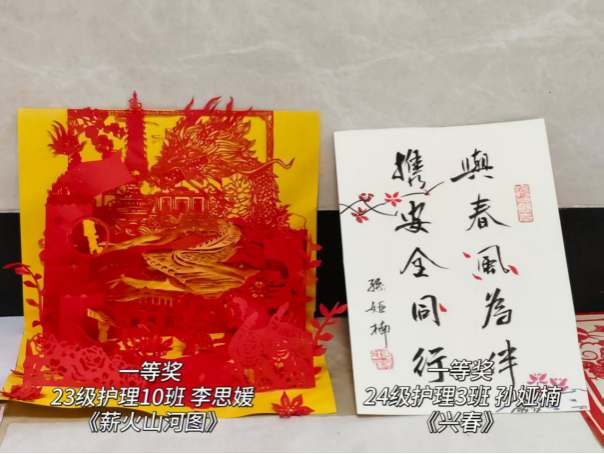 與春風為伴
携安全同行
孫娅楠
一等奖
23级护理10班 李思媛
《薪火山河图》
一等奖
24级护理3班 孙娅楠
《兴春》